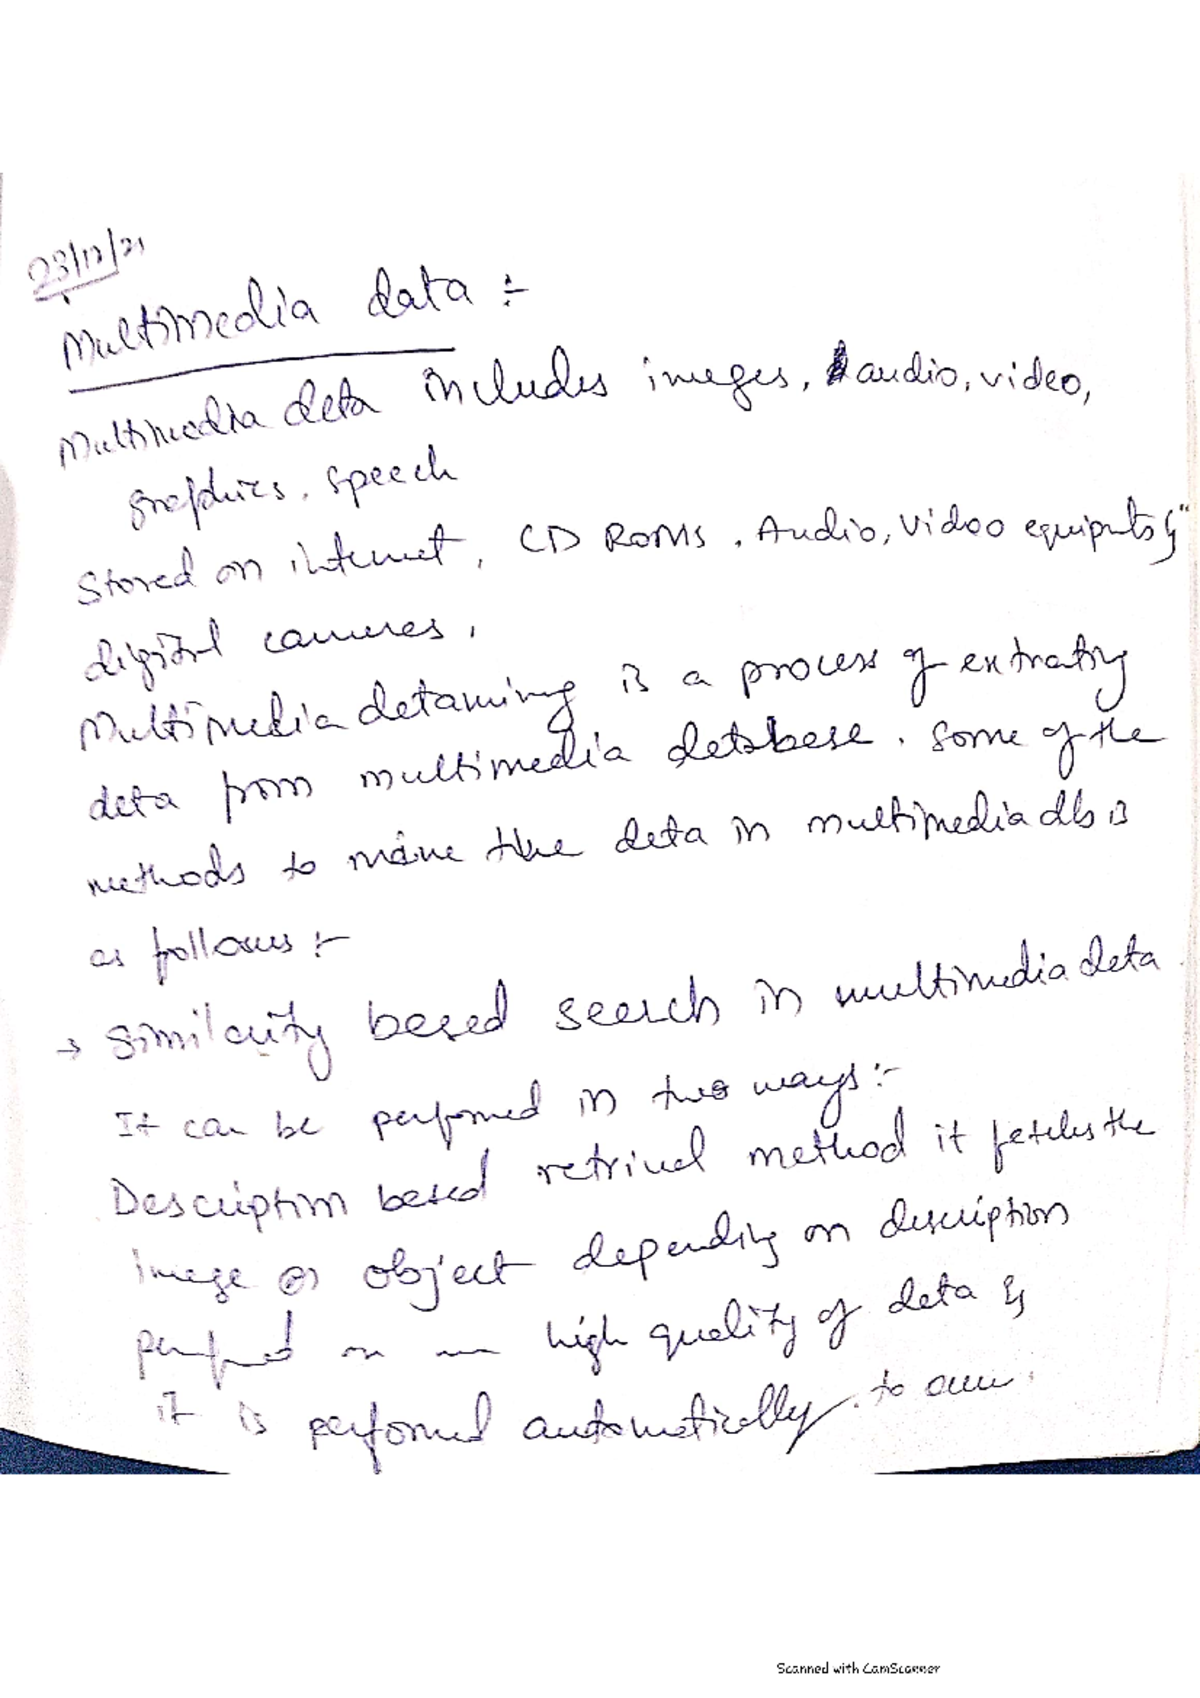 23/12/21
Multimedia data :-
Multimedia data includes images, audio, video,
graphics, speech
Stored on internet, CD ROMS, Audio, video equipmts &
digital cameras,
Multimedia datamining is a process of extrating
data from multimedia database. Some of the
methods to maine the data in multimedia db is
as follows :-
→ Similarity based search in multimedia data
It can be performed in two ways :-
Description based retrival method it fetches the
image or object depending on description
high quality of data &
it is performed automatically. to
Scanned with CamScanner